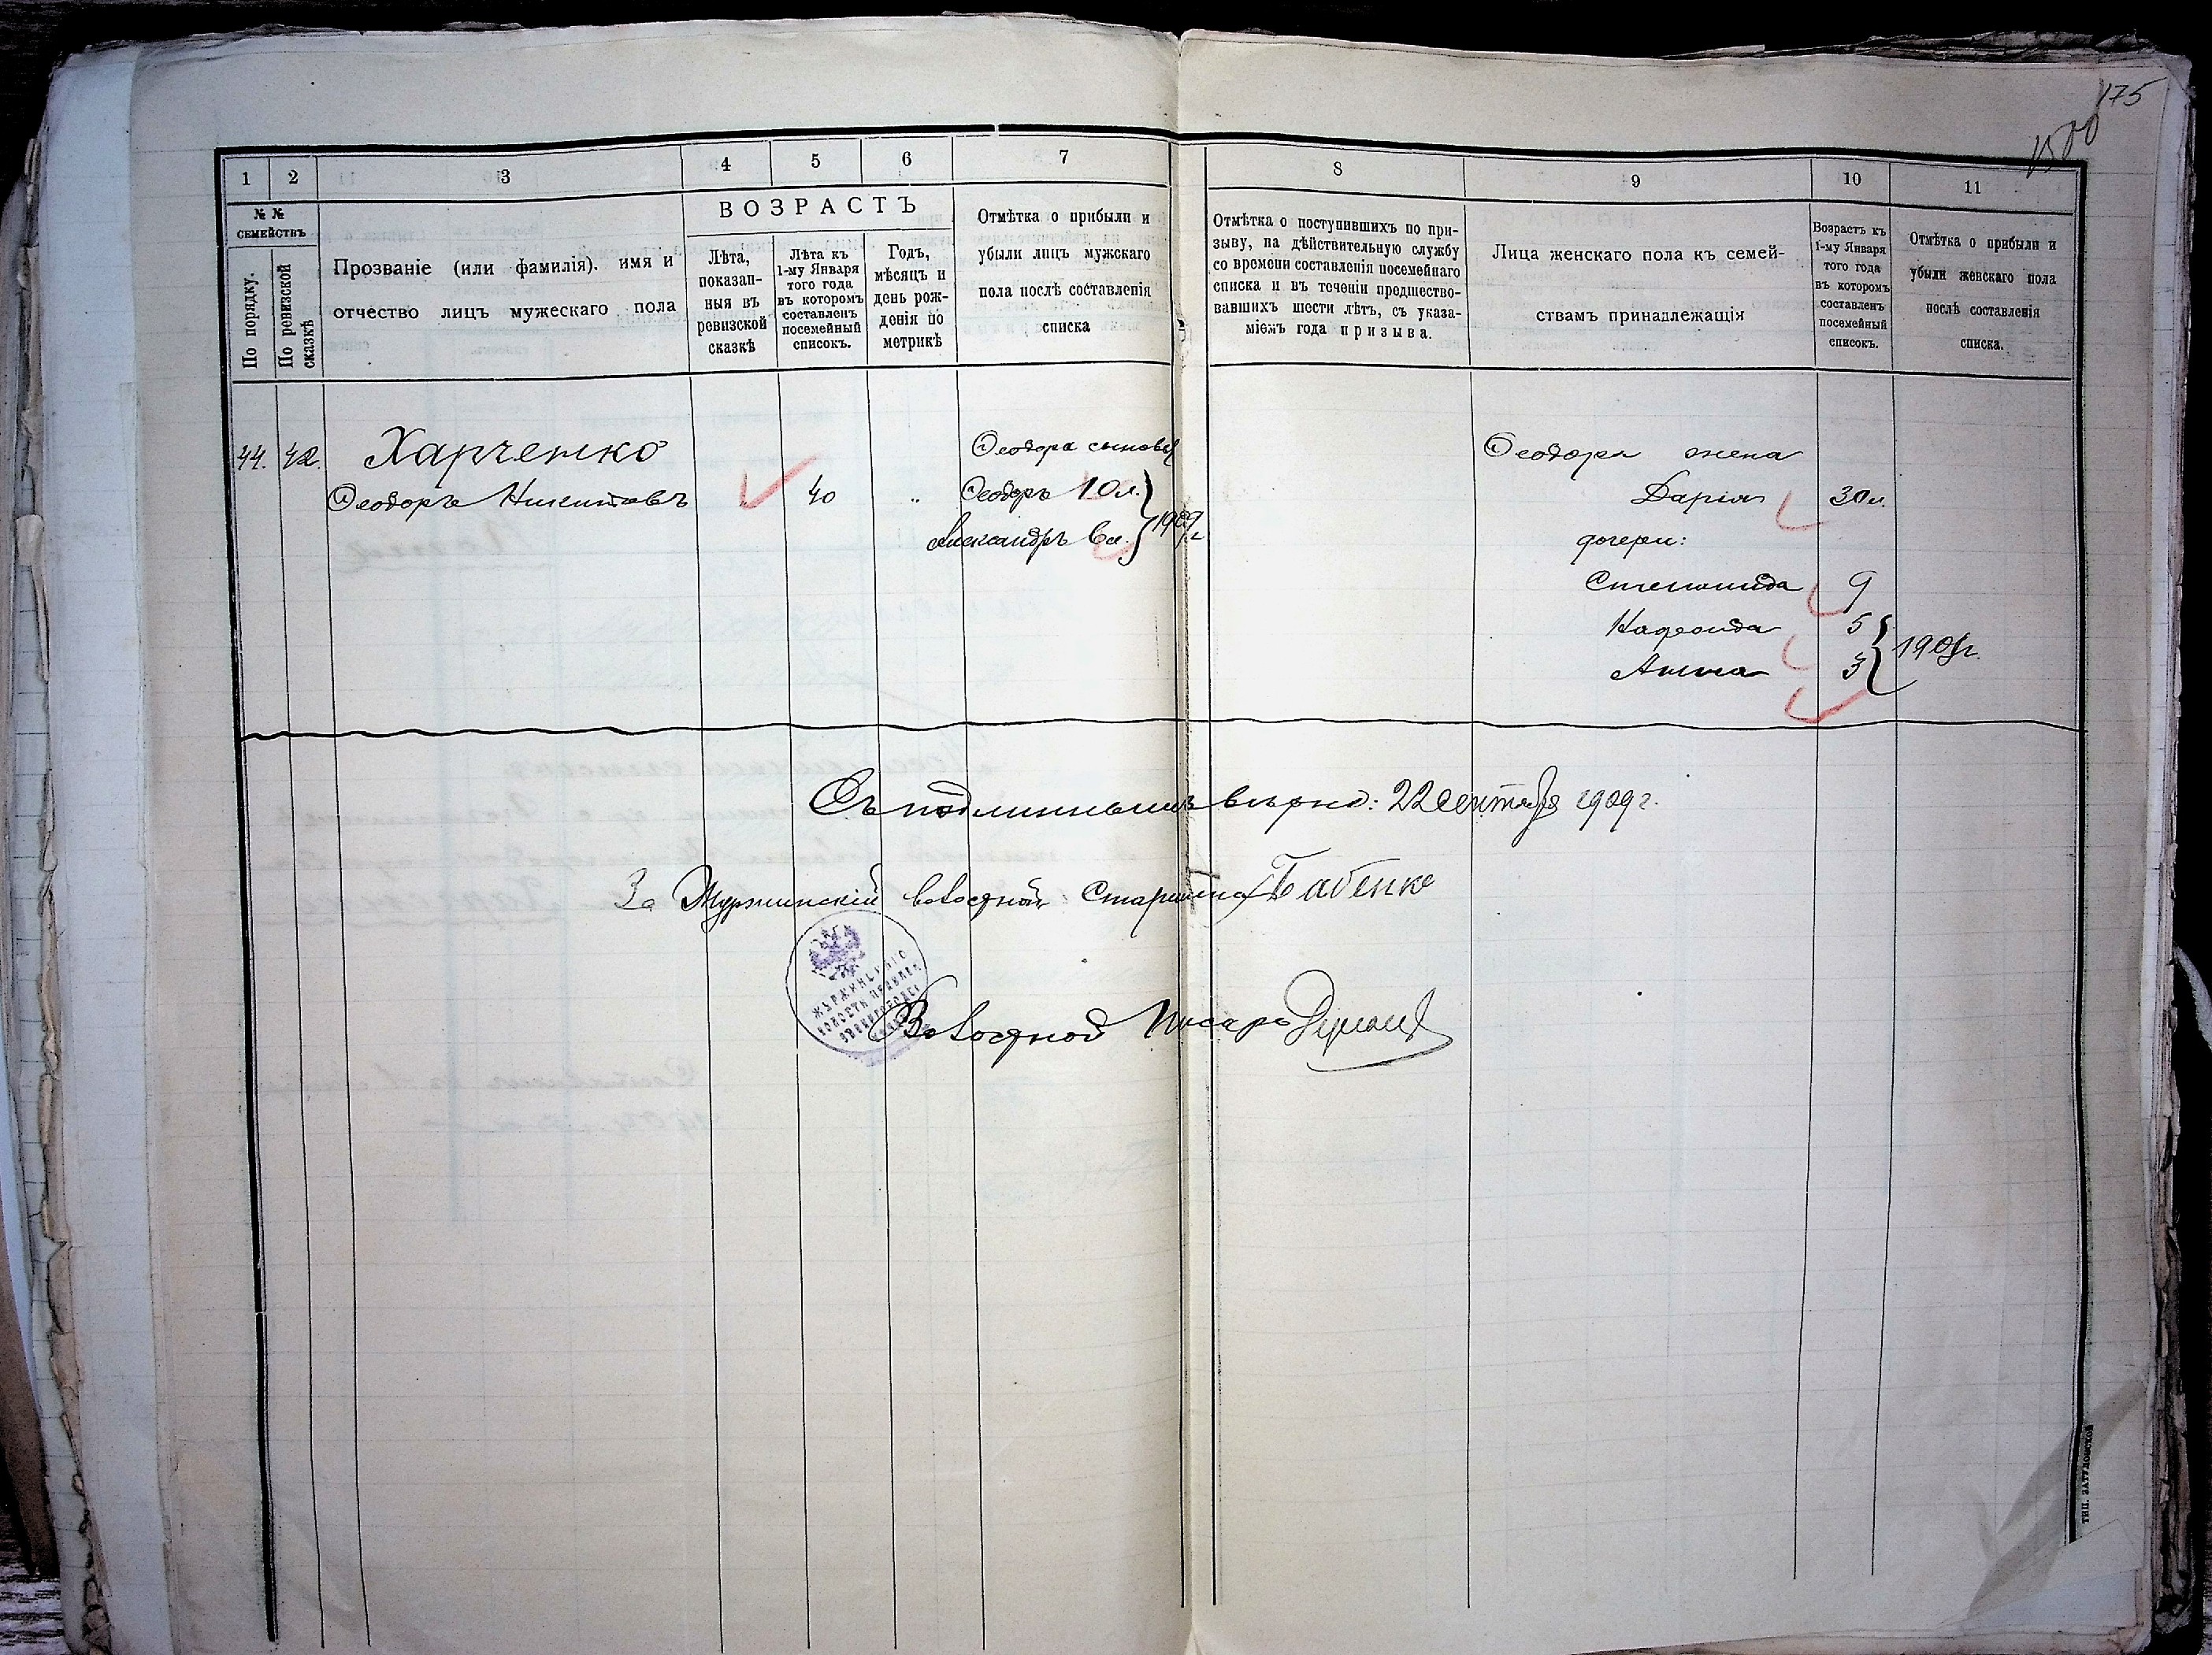 175
1 2 3 4 5 6 7 8 9 10 11
№ №
СЕМЕЙСТВЪ
По порядку.
По ревизской
сказкѣ
Прозваніе (или фамилія). имя и
отчество лицъ мужескаго пола
ВОЗРАСТЪ
Лѣта,
показан-
ныя въ
ревизской
сказкѣ
Лѣта къ
1-му Января
того года
въ которомъ
составленъ
посемейный
списокъ.
Годъ,
мѣсяцъ и
день рож-
денія по
метрикѣ
Отмѣтка о прибыли и
убыли лицъ мужскаго
пола послѣ составленія
списка
Отмѣтка о поступившихъ по при-
зыву, на дѣйствительную службу
со времени составленія посемейнаго
списка и въ теченіи предшество-
вавшихъ шести лѣтъ, съ указа-
ніемъ года призыва.
Лица женскаго пола къ семей-
ствамъ принадлежащія
Возрастъ къ
1-му Января
того года
въ которомъ
составленъ
посемейный
списокъ.
Отмѣтка о прибыли и
убыли женскаго пола
послѣ составленія
списка.
44. 42. Харченко
Ѳеодоръ Никитовъ 40 "
Ѳеодора сыновья
Ѳеодоръ 10 л.
Александръ 6 л. 1909 г.
Ѳеодора жена
Дарія 30 л.
дочери:
Степанида 9
Надежда 5
Анна 3
Съ подлиннымъ вѣрно: 22 Сентября 1909 г.
За Журжинскій волосной Старшина Бабенко
ЖУРЖИНСКАГО
ВОЛОСТН. ПРАВЛЕН.
Волосной Писарь
ТИП. ЗАТУЛОВСКОЙ